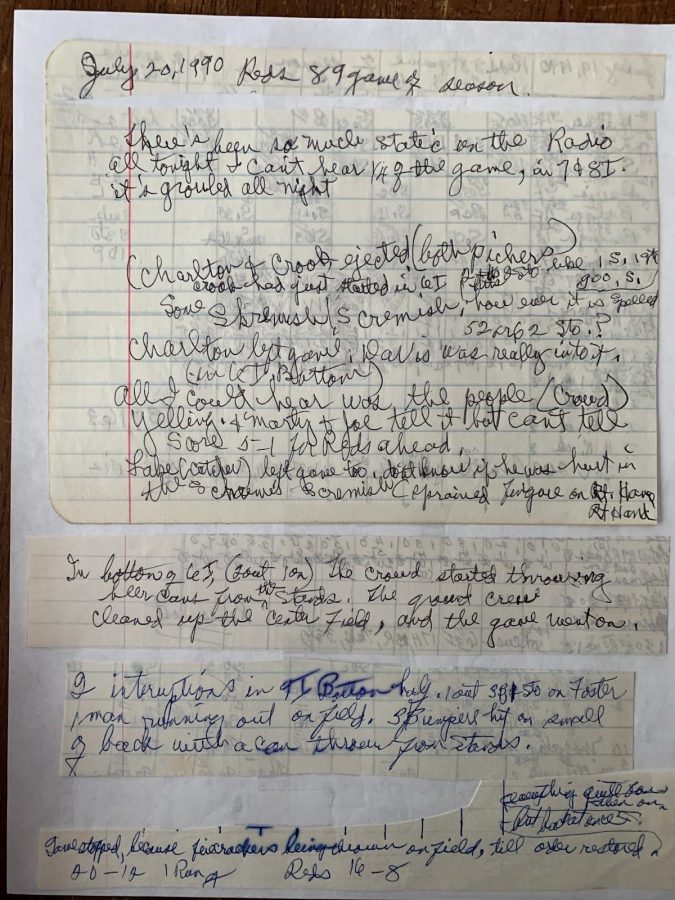 July 20, 1990 Reds 89 game of season.
There's been so much static on the Radio
all tonight I can't hear 1/4 of the game, in 7 & 8 I.
it's grouled all night
(Charlton & Crook ejected (both pichers)
Crook had just started in 6 I like 1 S. 1st
Some Skremish, Scremish, how ever it is spelled
52 or 62 St.?
Charlton left game. Davis was really into it.
(in 6 I, Bottom)
all I could hear was the people (Croud)
Yelling & Marty & Joe tell it but can't tell
Sore 5-1 for Reds ahead.
(catcher) left game too, dont know if he was hurt in
the Scremish (sprained fingore on Rt. Hand
Rt Hand
In bottom of 6 I, (2 out 1 on) The crowd started throwing
beer cans from the stands. The ground crew
cleaned up the center field, and the game went on.
2 interuptions in Bottom half. 1 out on Foster
1 man running out on field. 3 B umpers hit on small
of back with a can throwe from stands.
everything quite down
then on
Game stopped, because firecrackers being thrown on field, till order restored.
1 Ran Reds 16-8